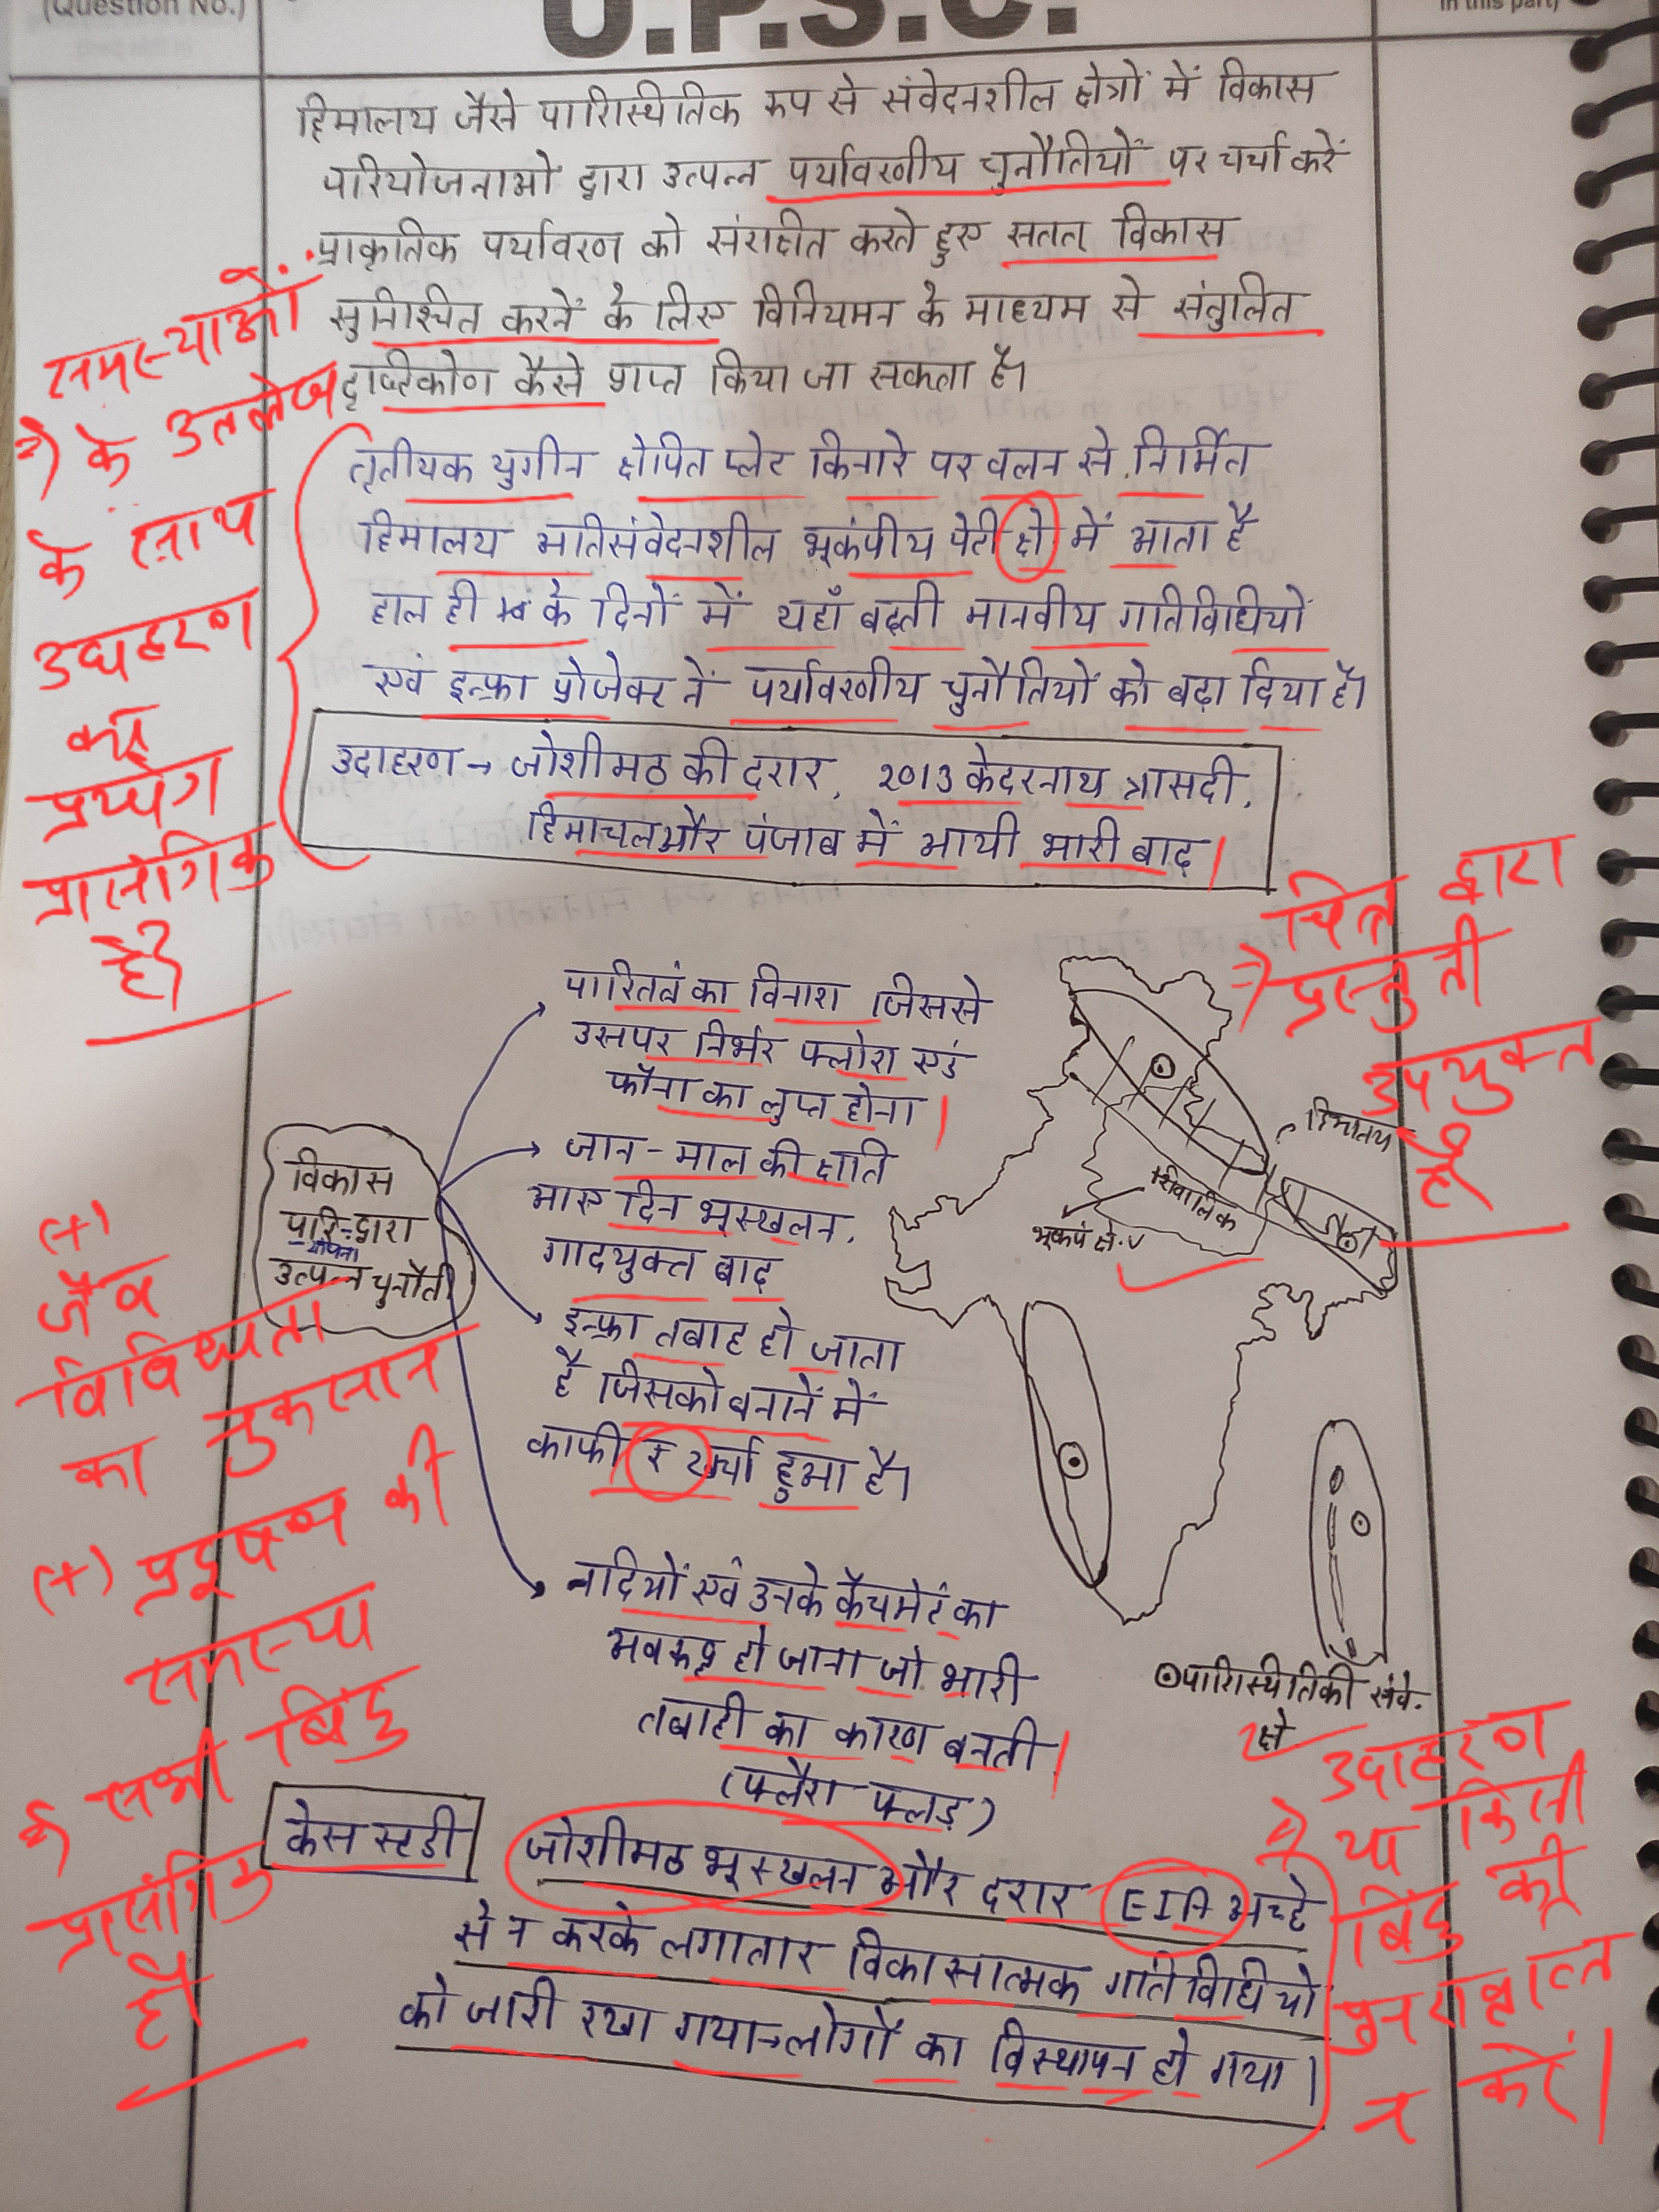 (Question No.)
U.P.S.C.
in this part)
हिमालय जैसे पारिस्थितिक रूप से संवेदनशील क्षेत्रों में विकास
परियोजनाओ द्वारा उत्पन्न पर्यावरणीय चुनौतियों पर चर्चा करें
प्राकृतिक पर्यावरण को संरक्षित करते हुए सतत् विकास
सुनिश्चित करनें के लिए विनियमन के माध्यम से संतुलित
दृष्टिकोण कैसे प्राप्त किया जा सकता है।
तृतीयक युगीन क्षेपित प्लेट किनारे पर वलन से निर्मित
हिमालय अतिसंवेदनशील भूकंपीय पेटी क्षे में आता है
हाल ही के दिनों में यहाँ बढ़ती मानवीय गतिविधियों
एवं इन्फ्रा प्रोजेक्ट नें पर्यावरणीय चुनौतियों को बढ़ा दिया है।
उदाहरण → जोशीमठ की दरार, २०१३ केदरनाथ त्रासदी,
हिमाचल और पंजाब में आयी भारी बाढ़
समस्याओं
के उल्लेख
के साथ
उदाहरण
का
प्रयोग
प्रासंगिक
है।
चित्र द्वारा
प्रस्तुती
उपयुक्त
है।
पारितंत्र का विनाश जिससे
उसपर निर्भर फ्लोरा एवं
फॉना का लुप्त होना।
जान-माल की क्षति
आए दिन भूस्खलन,
गादयुक्त बाढ़
इन्फ्रा तबाह हो जाता
है जिसको बनानें में
काफी खर्चा हुआ है।
नदियों एवं उनके कैचमेंट का
अवरूद्ध हो जाना जो भारी
तबाही का कारण बनती।
(फ्लैश फ्लड)
विकास
परि-द्वारा
योजना
उत्पन्न चुनौती
हिमालय
शिवालिक
भूकंप क्षे. V
⊙पारिस्थितिकी संवे.
क्षे.
(+)
जैव
विविधता
का नुकसान
(+) प्रदूषण की
समस्या
सभी बिंदु
प्रासंगिक
है।
केस स्टडी
जोशीमठ भूस्खलन और दरार EIA अच्छे
से न करके लगातार विकासात्मक गतिविधियों
को जारी रखा गया→लोगों का विस्थापन हो गया।
उदाहरण
या किसी
बिंदु की
पुनरावृत्ति
न करें।